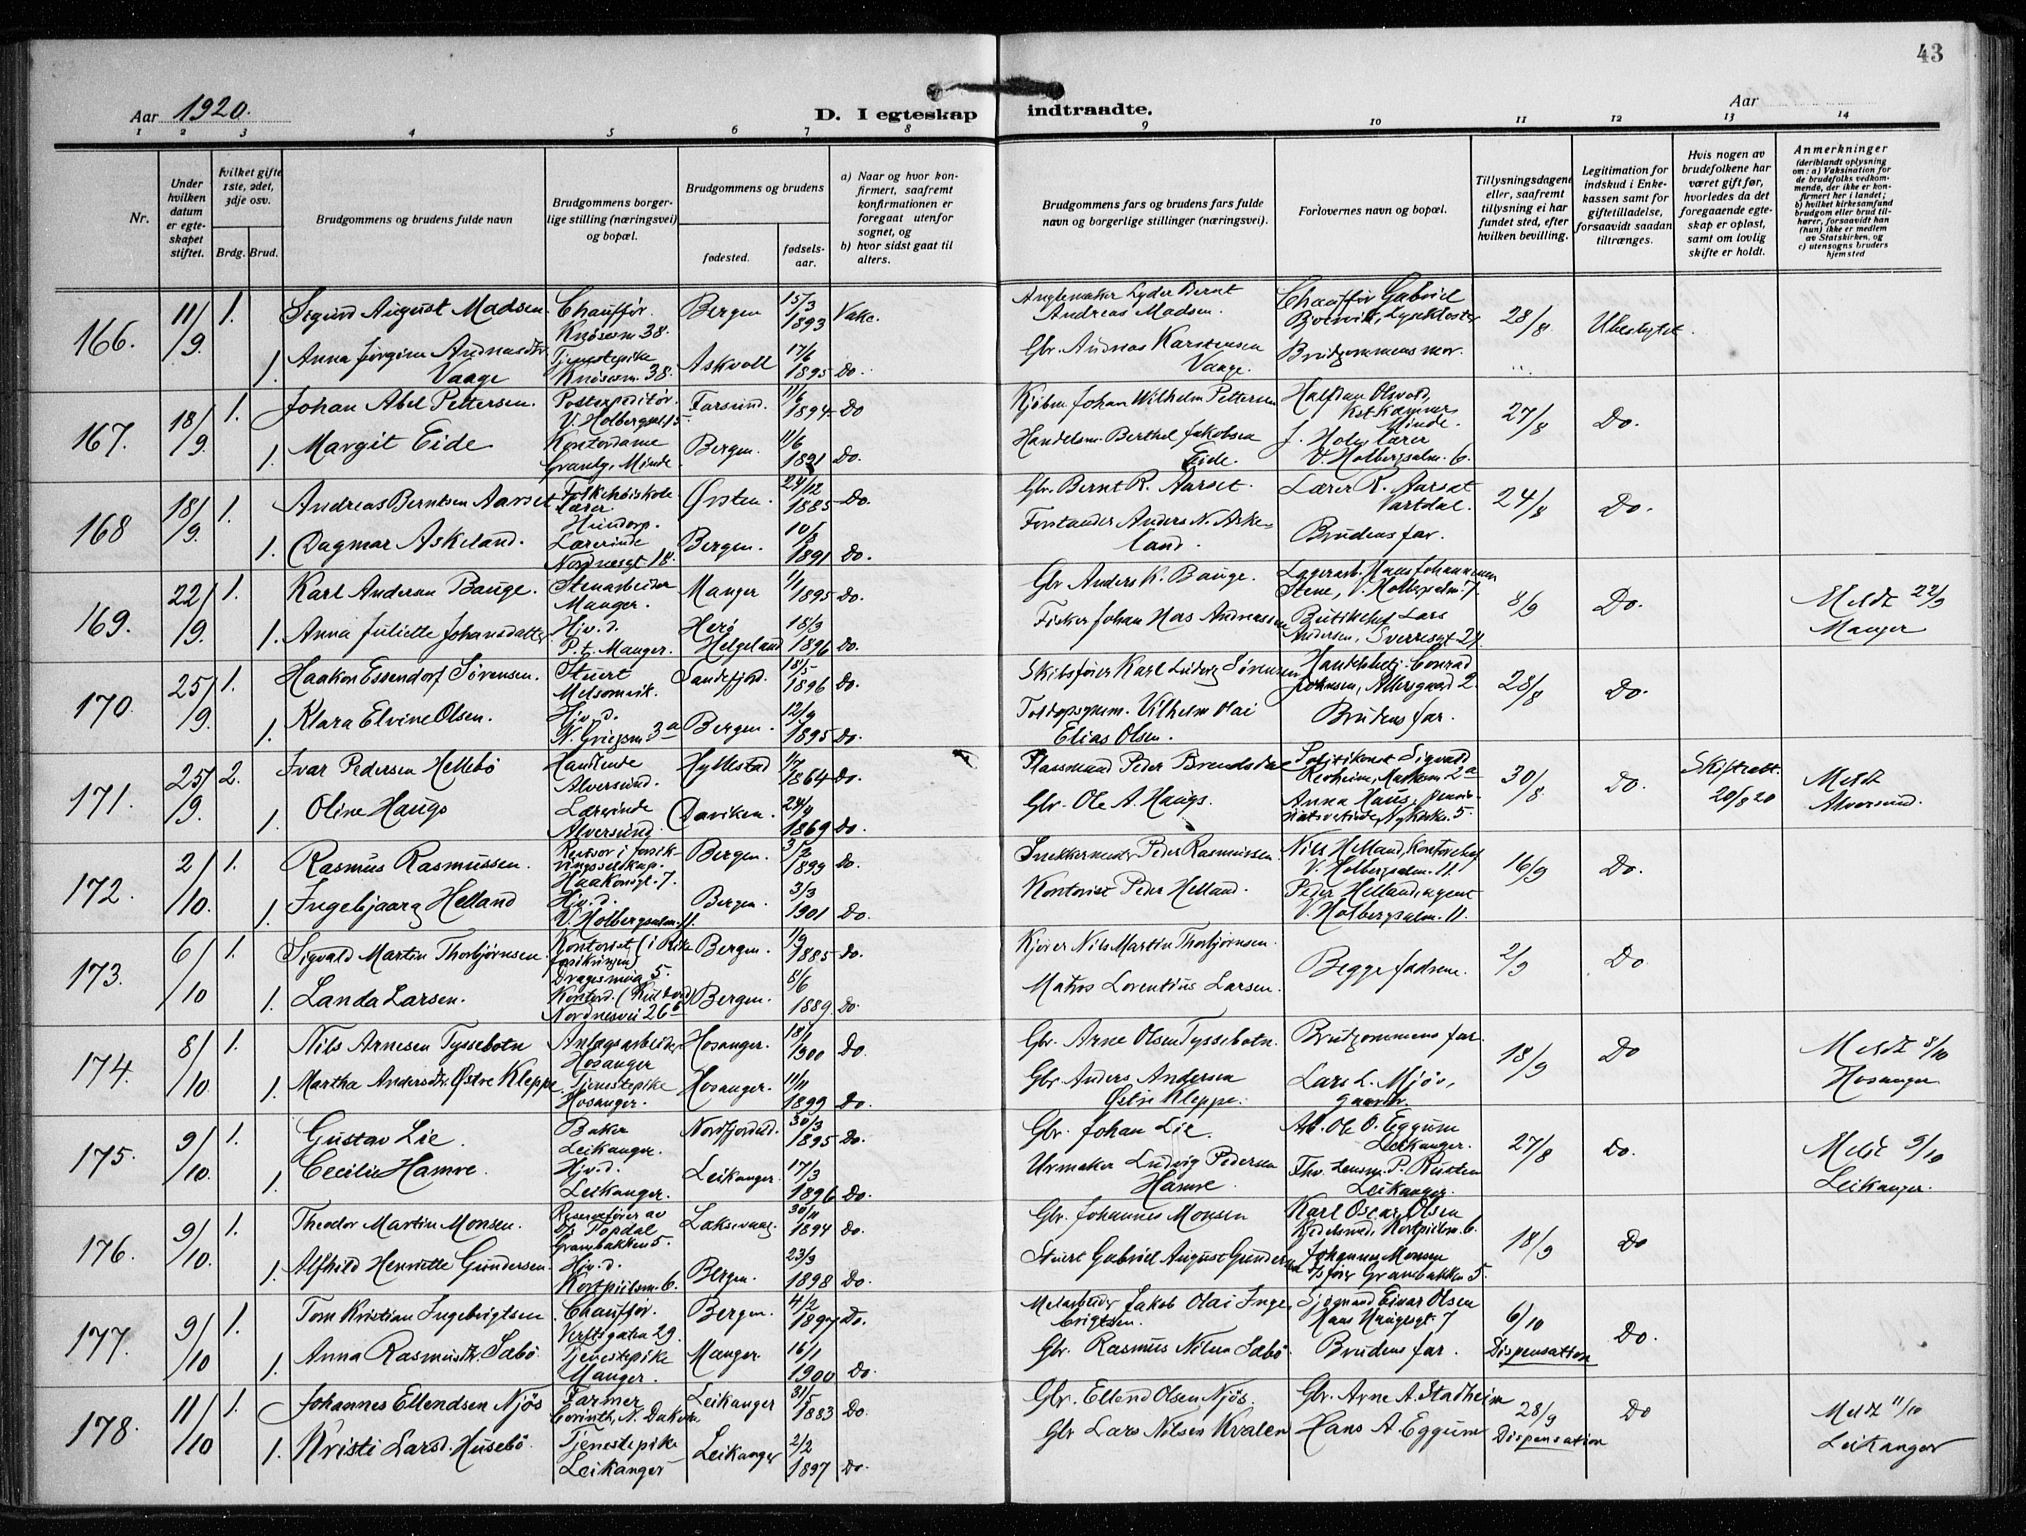 43
Aar 1920.
D. I egteskap indtraadte.
Aar
1 2 3 4 5 6 7 8 9 10 11 12 13 14
Nr.
Under hvilken datum er egteskapet stiftet.
hvilket gifte 1ste, 2det, 3dje osv.
Brdg. Brud.
Brudgommens og brudens fulde navn
Brudgommens borgerlige stilling (næringsvei) og bopæl.
Brudgommens og brudens
fødested.
fødselsaar.
a) Naar og hvor konfirmert, saafremt konfirmationen er foregaat utenfor sognet, og
b) hvor sidst gaat til alters.
Brudgommens fars og brudens fars fulde navn og borgerlige stillinger (næringsvei).
Forlovernes navn og bopæl.
Tillysningsdagene eller, saafremt tillysning ei har fundet sted, efter hvilken bevilling.
Legitimation for indskud i Enkekassen samt for giftetilladelse, forsaavidt saadan tiltrænges.
Hvis nogen av brudefolkene har været gift før, hvorledes da det foregaaende egteskap er opløst, samt om lovlig skifte er holdt.
Anmerkninger (deriblandt oplysning om: a) Vaksination for de brudefolks vedkommende, der ikke er konfirmert her i landet; b) hvilket kirkesamfund brudgom eller brud tilhører, forsaavidt han (hun) ikke er medlem av Statskirken, og c) utensogns bruders hjemsted
166. 11/9. 1. Sigurd August Madsen. Chauffør. Knøsesm 38. Bergen 15/3 1893 Vake. Lyder Bernt Andreas Madsen. Chauffør Gabriel 28/8 Ubeskyttet.
1. Anna Jørgine Vaage Tjenestepike Knøsesm. 38. Askvoll 17/6 1895 Do. Gbr. Andreas Karstensen Vaage. Brudgommens mor.
167. 18/9. 1. Johan Abel Pettersen. Postexpeditør. V. Holbergsal. 15 Farsund. 11/6 1894 Do Kjøbm. Johan Wilhelm Pettersen Halfdan Olsvold, Minde. 27/8 Do.
1. Margit Eide Kontordame Minde Bergen. 11/6 1891 Do. Handelsm. Berthel Jakobsen Eide. J. Hole, Lærer V. Holbergsalm. 6.
168 18/9. 1. Andreas Berntsen Aarset Folkehøiskolelærer Hundorp. Ørsten. 24/12 1885 Do. Gbr. Bernt R. Aarset. Lærer R. Aarset Vartdal. 24/8 Do.
1. Dagmar Askeland. Lærerinde Nordnesgt 18. Bergen. 10/8 1891 Do. Forstander Anders N. Askeland. Brudens far.
169. 22/9. 1. Karl Andersen Bauge. Stenarbeider Manger. Manger 1/1 1895 Do. Gbr Anders K. Bauge. Lagerarb. Hans Johannessen Stene, V. Holbergsalm. 7. 8/9 Do. Meldt 22/9 Manger
1. Anna Juliette Johansdatter Hjv. d. P. t. Manger. Herø Helgeland 18/3 1896 Do. Fisker Johan Hos Andreassen Butikchef Lars Andersen, Sverresgt 24.
170. 25/9. 1. Haakon Essendorf Sørensen. Stuert Melsomvik. Sandefjord. 18/5 1896 Do. Skibsfører Karl Ludvig Sørensen Conrad Johnsen, 2. 28/8 Do.
1. Klara Elvine Olsen. Hjv. d. N. Griegsm 3a Bergen. 12/9 1895 Do. Toldopsynm. Vilhelm Olai Elias Olsen. Brudens far.
171. 25/9. 2. Ivar Pedersen Hellebø Handlende Alversund. Hyllestad 1/7 1864 Do. Plassmand Peder Brendsdal Politikonst Sigvald 2a 30/8 Do. Skifteatt. 20/8 20 Meldt Alversund.
1. Oline Haugs Lærerinde Alversund. Daviken. 24/9 1869 Do. Gbr. Ole A. Haugs. Anna Haus, Nykirkes. 5.
172. 2/10. 1. Rasmus Rasmussen. Revisor i forsikringsselskap. Haakonsgt. 7. Bergen. 3/2 1899 Do. Snekkermester Peder Rasmussen. Nils Helland, Kontorchef V. Holbergsalm. 11. 16/9 Do.
1. Ingebjaarg Helland Hjv. d. V. Holbergsalm. 11. Bergen. 3/3 1901 Do. Kontorist Peder Helland. Peder Helland, agent V. Holbergsalm. 11.
173. 6/10 1. Sigvald Martin Thorbjørnsen. Kontorist Dragesmug 5. Bergen. 11/9 1885 Do. Kjører Nils Martin Thorbjørnsen. Begge fædrene. 2/9 Do.
1. Landa Larsen. Nordnesvei 26b Bergen. 8/6 1889 Do. Matros Lorentius Larsen.
174. 8/10 1. Nils Arnesen Tyssebotn Anlægsarbeider Hosanger Hosanger. 18/1 1900 Do. Gbr. Arne Olsen Tyssebotn. Brudgommens far. 18/9 Do Meldt 8/10 Hosanger
1. Martha Andersdtr. Østre Kleppe. Tjenestepike Hosanger. Hosanger. 11/11 1899 Do. Gbr. Anders Andersen Østre Kleppe. Lars L. Mjøs, Gaardbr.
175. 9/10. 1. Gustav Lie. Baker Leikanger. Nordfjordeid. 30/3 1895 Do. Gbr. Johan Lie. Ole O. Eggum Leikanger. 27/8 Do. Meldt 9/10 Leikanger.
1. Cecilie Hamre. Hjv. d. Leikanger. Leikanger. 17/3 1896 Do. Urmaker Ludvig Pedersen Hamre. P. Rutten Leikanger.
176. 9/10. 1. Theodor Martin Monsen. Topdal Granebakken 5. Laksevaag. 30/11 1894 Do. Gbr. Johannes Monsen Karl Oscar Olsen Kortpilsm. 6. 18/9 Do
1. Alfhild Henriette Gundersen. Hjv. d. Kortpilsm. 6. Bergen. 23/9 1898 Do. Stuert Gabriel August Gundersen Johannes Monsen Granebakken 5.
177. 9/10 1. Tom Kristian Ingebrigtsen Chauffør. Verftsgaten 29. Bergen. 4/2 1897 Do. Jakob Olai Ingebrigtsen. Einar Olsen Hans Haugesgt 7 6/10 Dispensation Do.
1. Anna Rasmusdtr. Sæbø. Tjenestepike Manger. Manger. 16/1 1900 Do. Gbr. Rasmus Nilsen Sæbø. Brudens far.
178. 11/10 1. Johannes Ellendsen Njøs Farmer Corinth, N. Dakota Leikanger 31/5 1883 Do. Gbr. Ellend Olsen Njøs. Gbr. Arne A. Stadheim 28/9 Dispensation Do Meldt 11/10 Leikanger
1. Kristi Larsd. Husebø. Tjenestepike Leikanger Leikanger 2/2 1897 Do. Gbr Lars Nilsen Kvalen Hans A Eggum